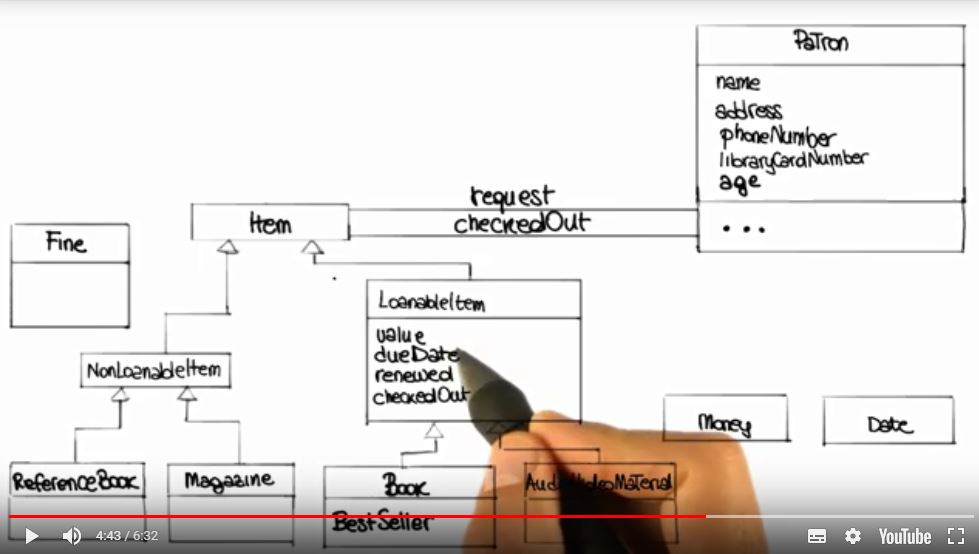 Patron
name
address
phoneNumber
libraryCardNumber
age
...
request
checkedOut
Item
Fine
LoanableItem
value
dueDate
renewed
checkedOut
NonLoanableItem
Money
Date
ReferenceBook
Magazine
Book
BestSeller
AudioVideoMaterial
4:43 / 6:32
YouTube